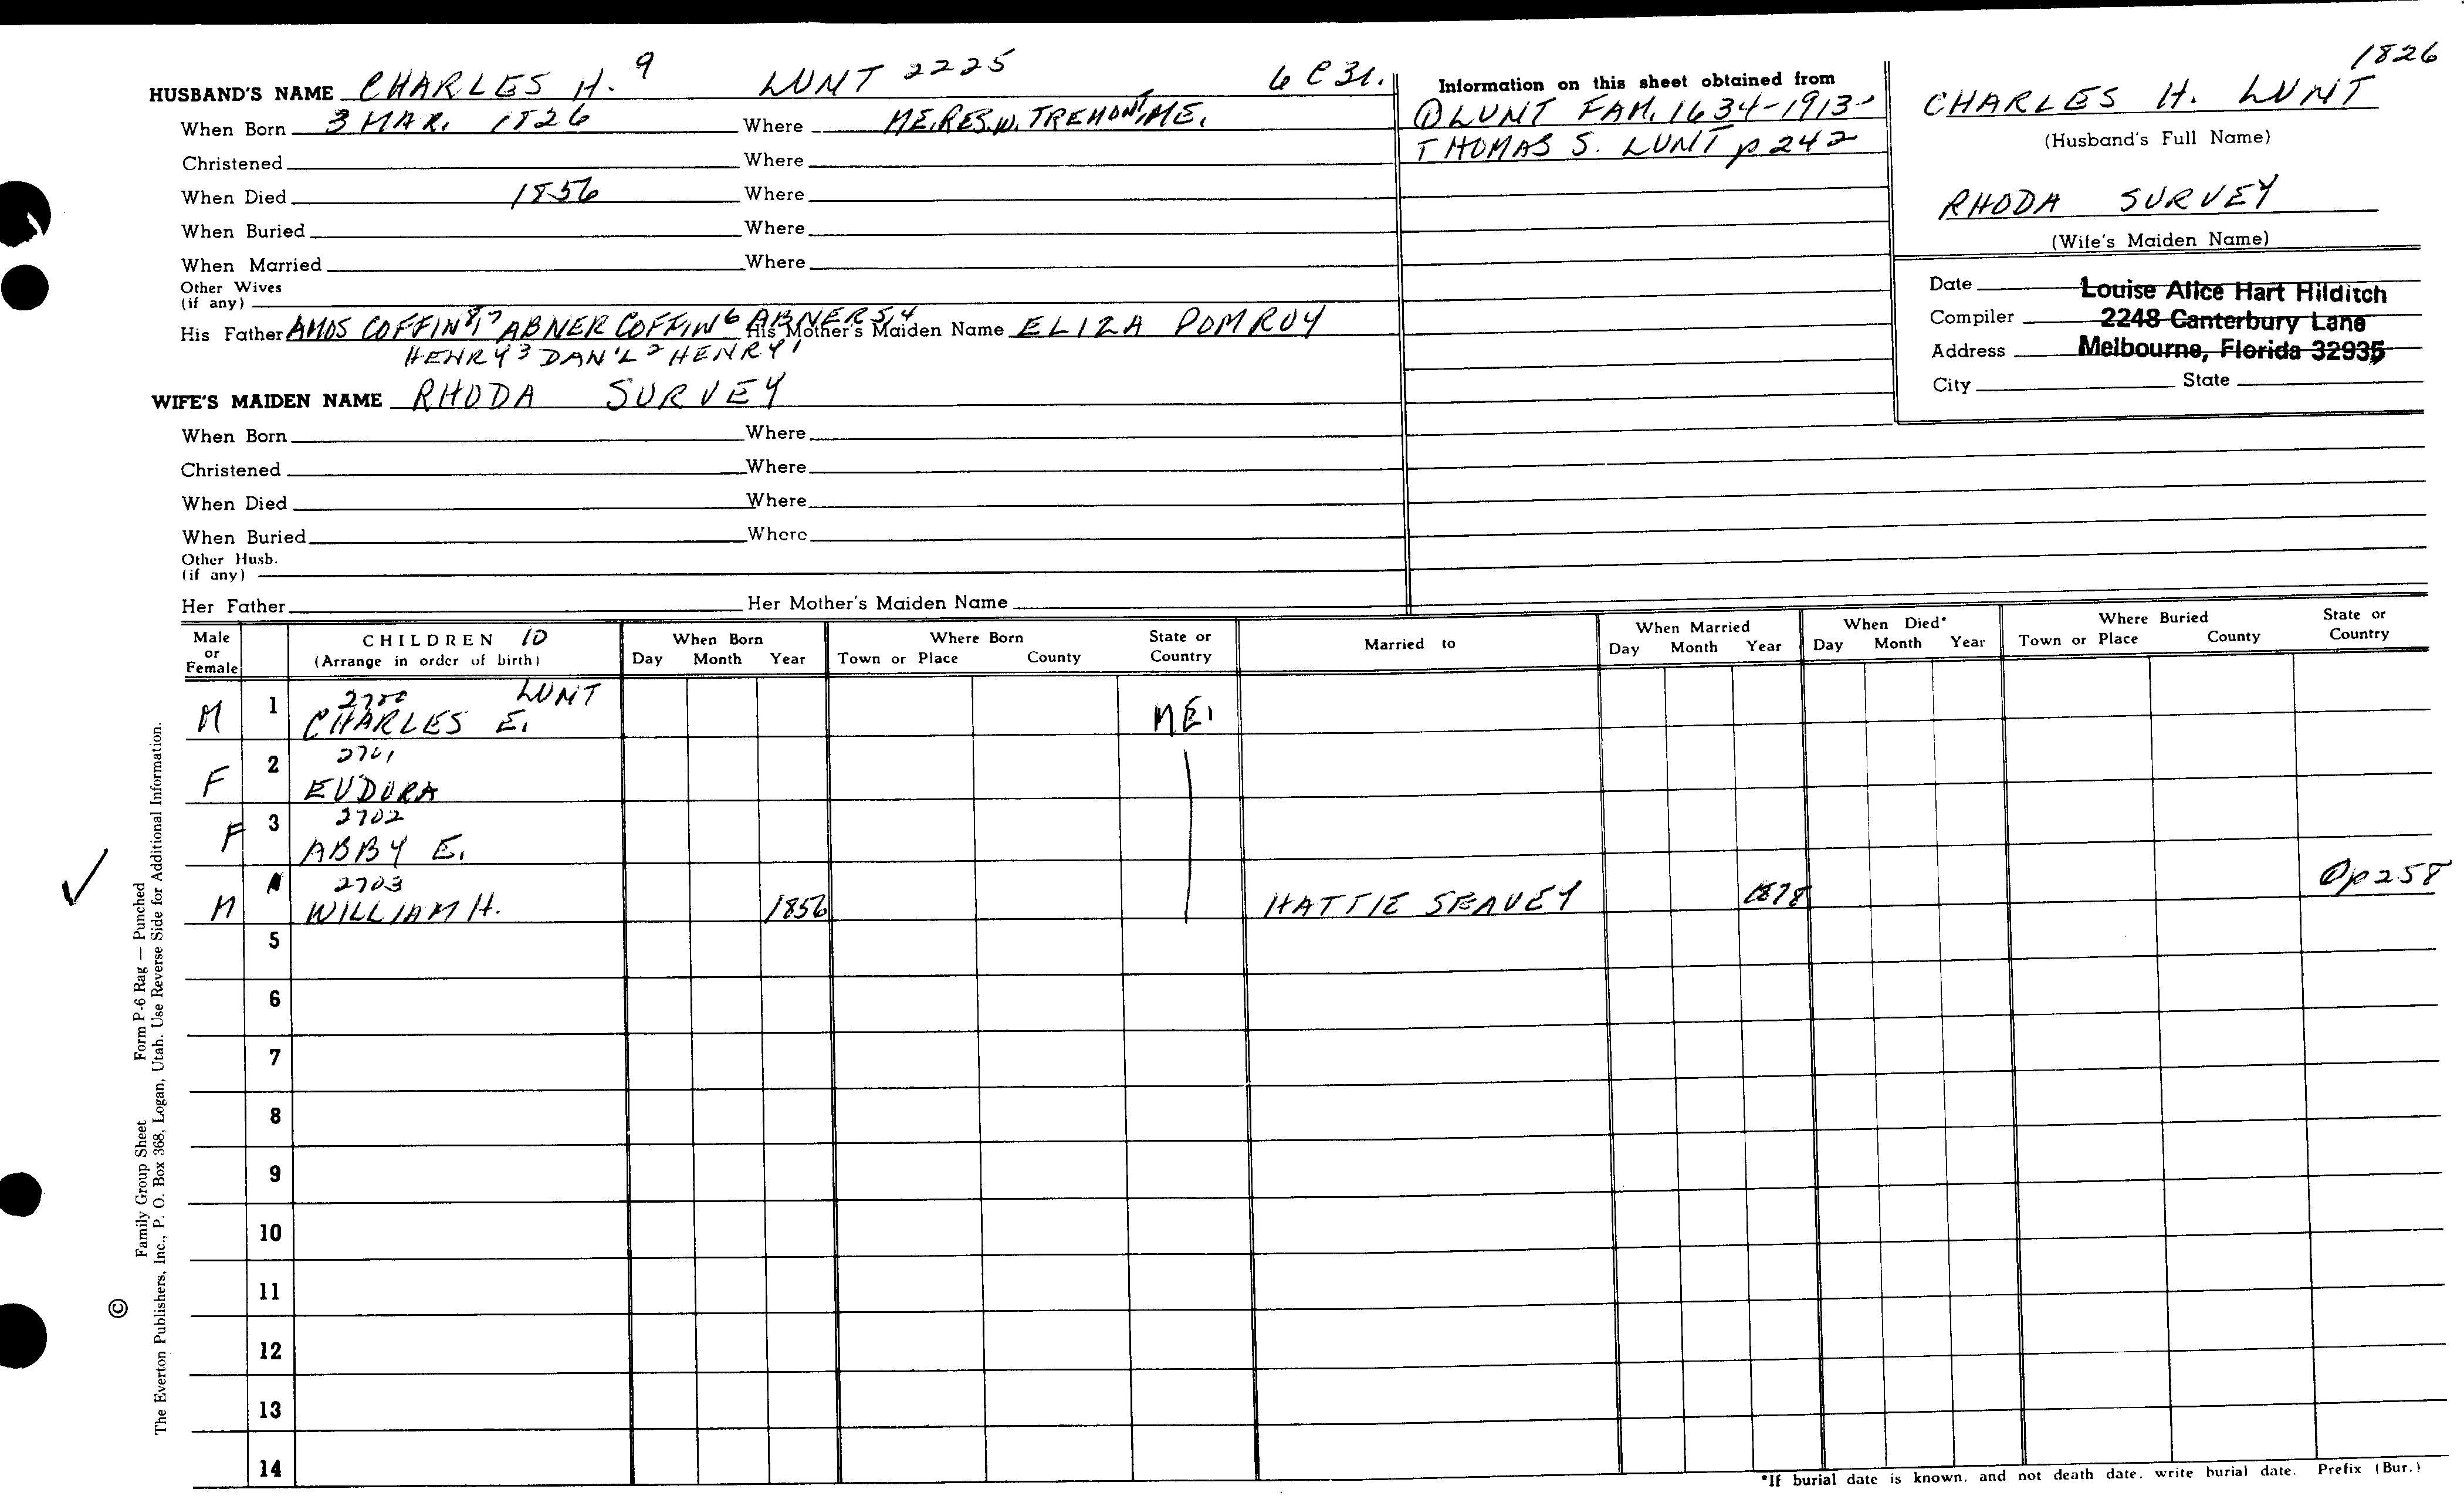 1826
HUSBAND'S NAME CHARLES H. 9 LUNT 2225 6 C 31.
When Born 3 MAR. 1826 Where ME. RES. W. TREMONT, ME.
Christened Where
When Died 1856 Where
When Buried Where
When Married Where
Other Wives
(if any)
His Father AMOS COFFIN 8,7 ABNER COFFIN 6 ABNER 5,4 His Mother's Maiden Name ELIZA POMROY
HENRY 3 DAN'L 2 HENRY 1
WIFE'S MAIDEN NAME RHODA SURVEY
When Born Where
Christened Where
When Died Where
When Buried Where
Other Husb.
(if any)
Her Father Her Mother's Maiden Name
Information on this sheet obtained from
① LUNT FAM. 1634-1913-
THOMAS S. LUNT p 242
CHARLES H. LUNT
(Husband's Full Name)
RHODA SURVEY
(Wife's Maiden Name)
Date Louise Alice Hart Hilditch
Compiler 2248 Canterbury Lane
Address Melbourne, Florida 32935
City State
Male or Female CHILDREN 10 (Arrange in order of birth) When Born Day Month Year Where Born Town or Place County State or Country Married to When Married Day Month Year When Died* Day Month Year Where Buried Town or Place County State or Country
M 1 2700 LUNT
CHARLES E. ME.
2 2701
F EUDORA
3 2702
F ABBY E.
2703
M WILLIAM H. 1856 HATTIE SEAVEY 1878 ① p 258
5
6
7
8
9
10
11
12
13
14
*If burial date is known, and not death date, write burial date. Prefix (Bur.)
© Family Group Sheet Form P-6 Rag — Punched
The Everton Publishers, Inc., P. O. Box 368, Logan, Utah. Use Reverse Side for Additional Information.